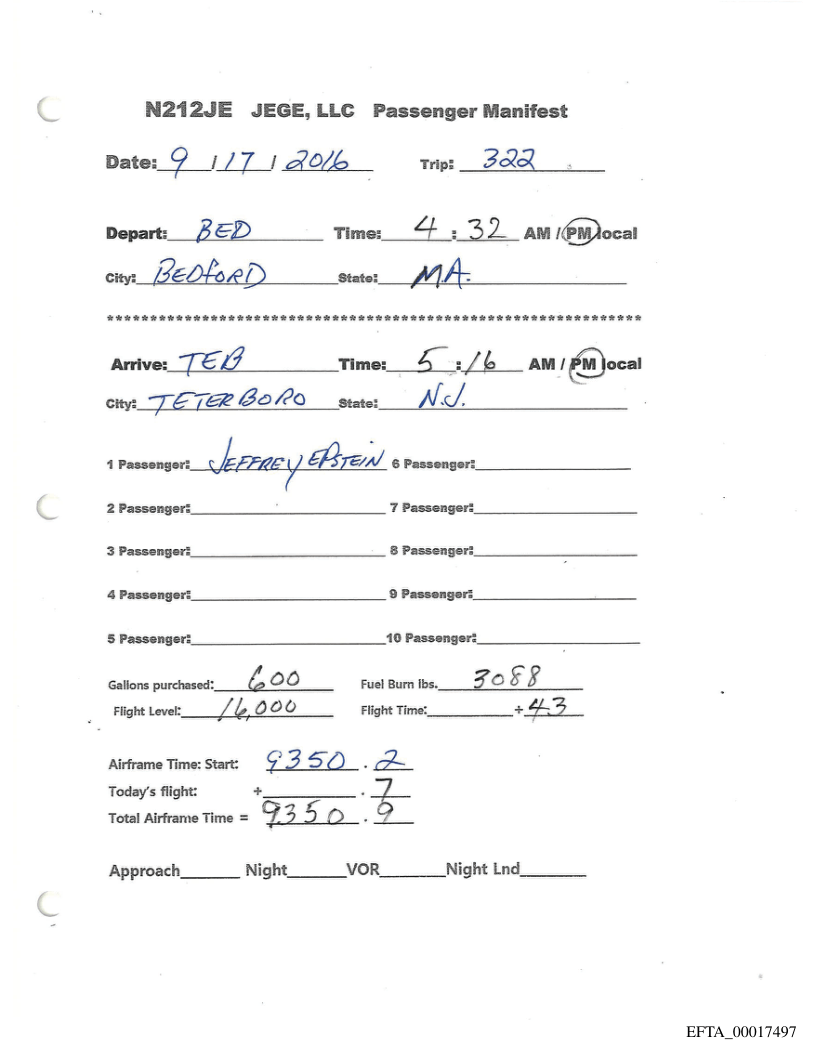 N212JE JEGE, LLC Passenger Manifest
Date: 9 / 17 / 2016 Trip: 322
Depart: BED Time: 4 : 32 AM / PM local
City: BEDFORD State: M.A.
****************************************************************
Arrive: TEB Time: 5 : 16 AM / PM local
City: TETERBORO State: N.J.
1 Passenger: JEFFREY EPSTEIN 6 Passenger:
2 Passenger: 7 Passenger:
3 Passenger: 8 Passenger:
4 Passenger: 9 Passenger:
5 Passenger: 10 Passenger:
Gallons purchased: 600 Fuel Burn lbs. 3088
Flight Level: 16,000 Flight Time: + 43
Airframe Time: Start: 9350 . 2
Today's flight: + . 7
Total Airframe Time = 9350 . 9
Approach Night VOR Night Lnd
EFTA_00017497